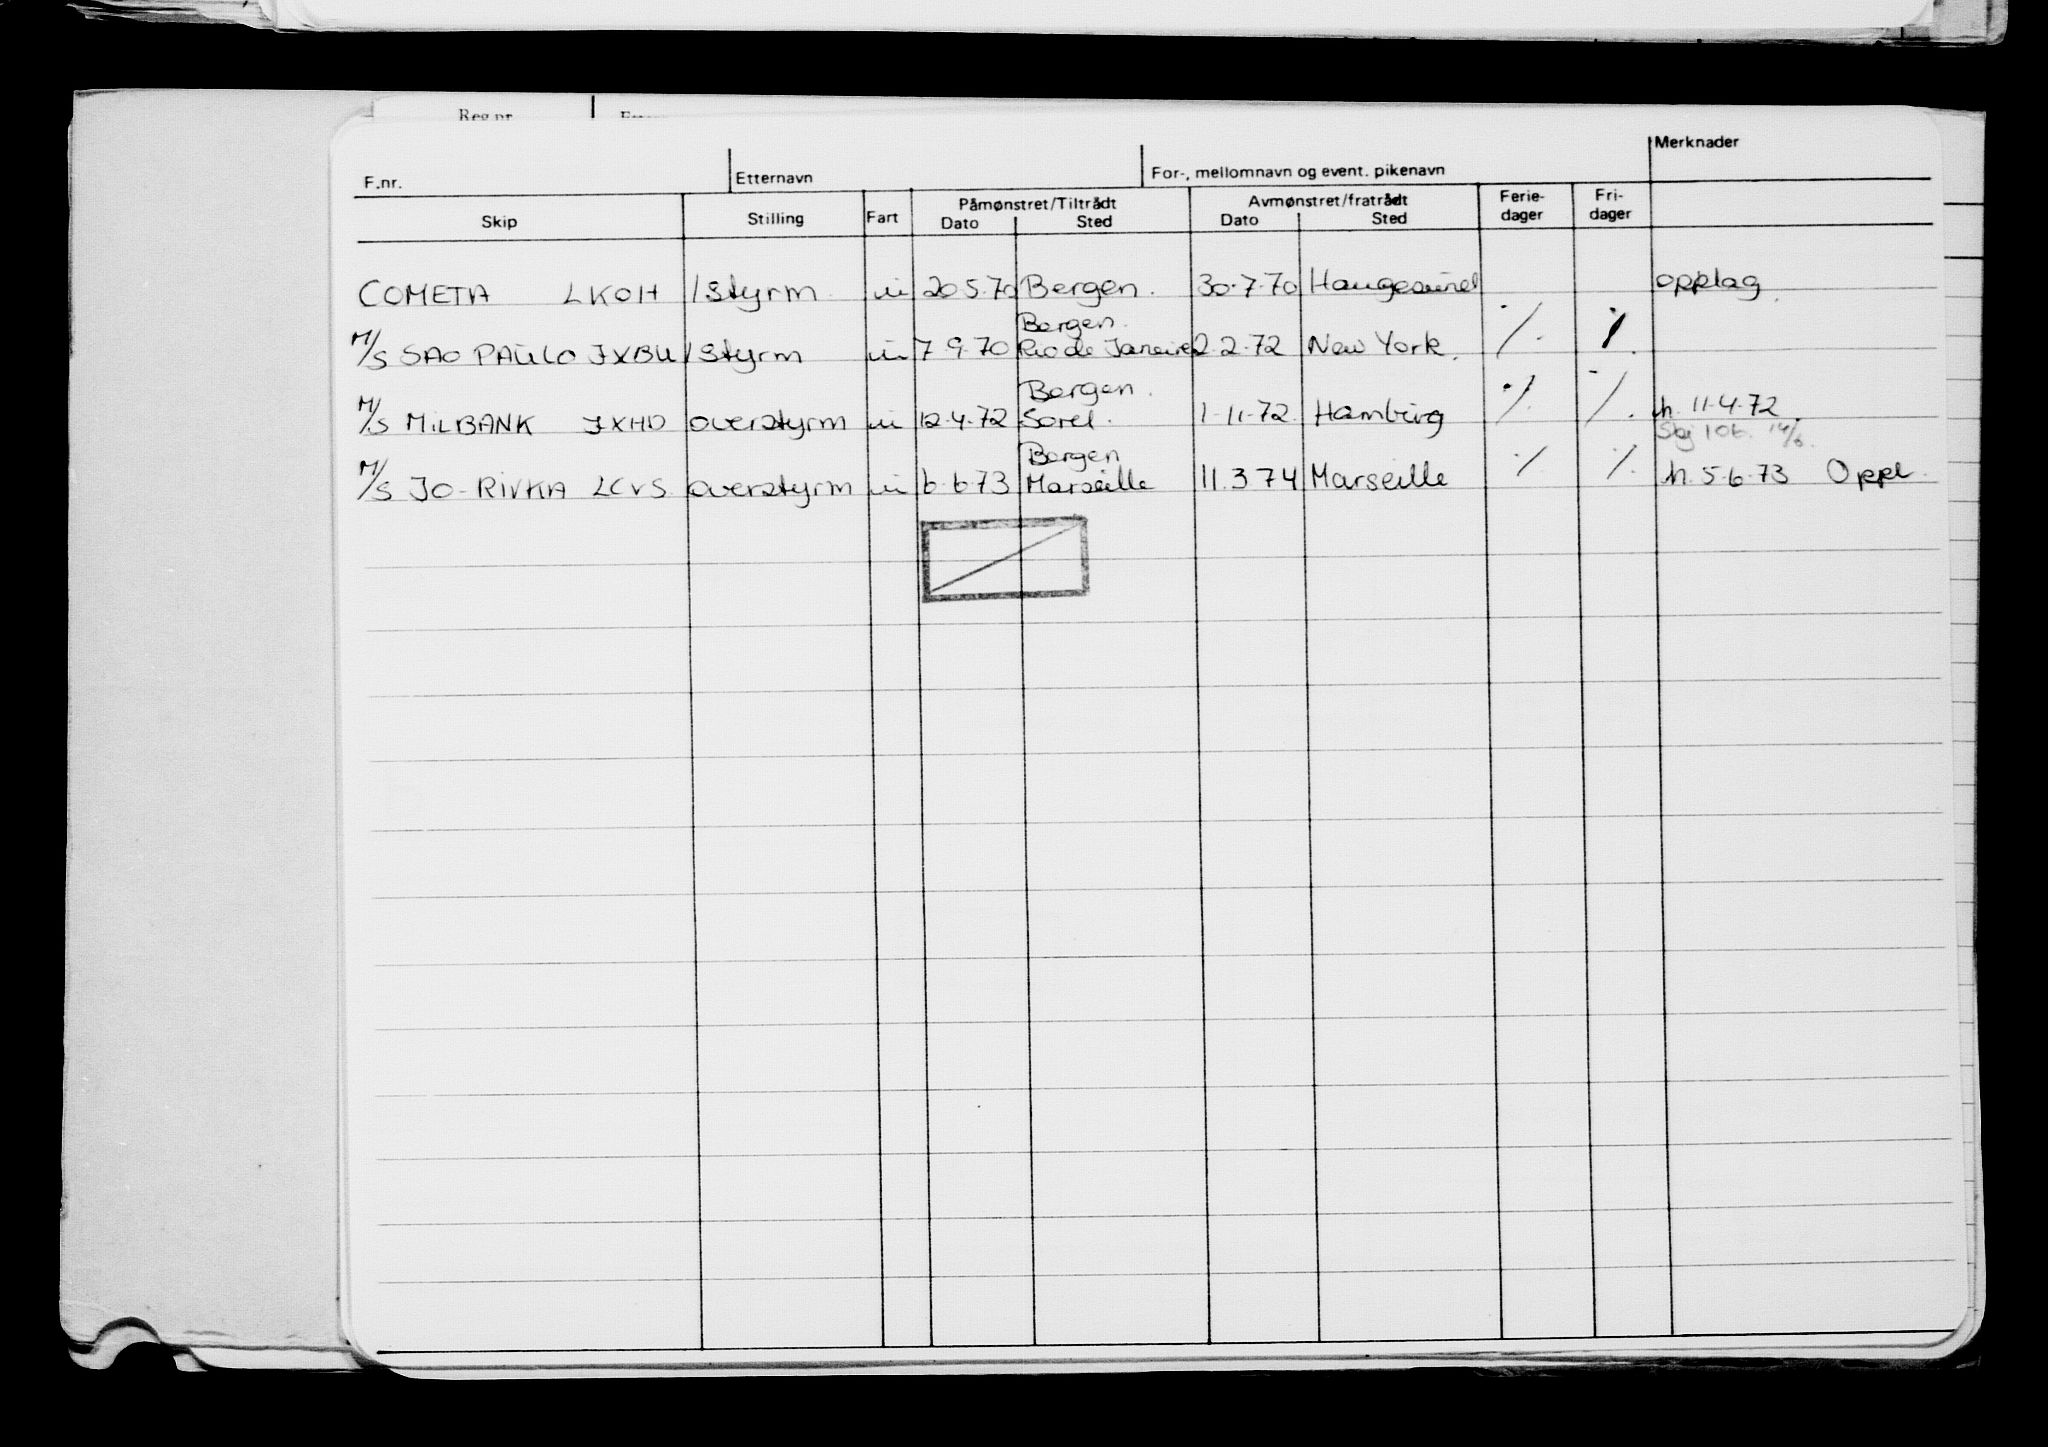 Reg.nr.
Merknader
F.nr. Etternavn For-, mellomnavn og event. pikenavn
Skip Stilling Fart Påmønstret/Tiltrådt Dato Sted Avmønstret/fratrådt Dato Sted Ferie-dager Fri-dager
COMETA LKOH 1 styrm u 20.5.70 Bergen. 30.7.70 Haugesund opplag
Bergen.
M/S SAO PAULO JXBU 1 styrm u 7.9.70 Rio de Janeiro 2.2.72 New York. ./. ./.
Bergen.
M/S MILBANK JXHD overstyrm u 12.4.72 Sorel. 1-11-72 Hamburg ./. ./. h. 11.4.72.
Bergen
M/S JO-RIVKA LCVS overstyrm u 6.6.73 Marseille 11.3 74 Marseille ./. ./. h. 5.6.73 Oppl.